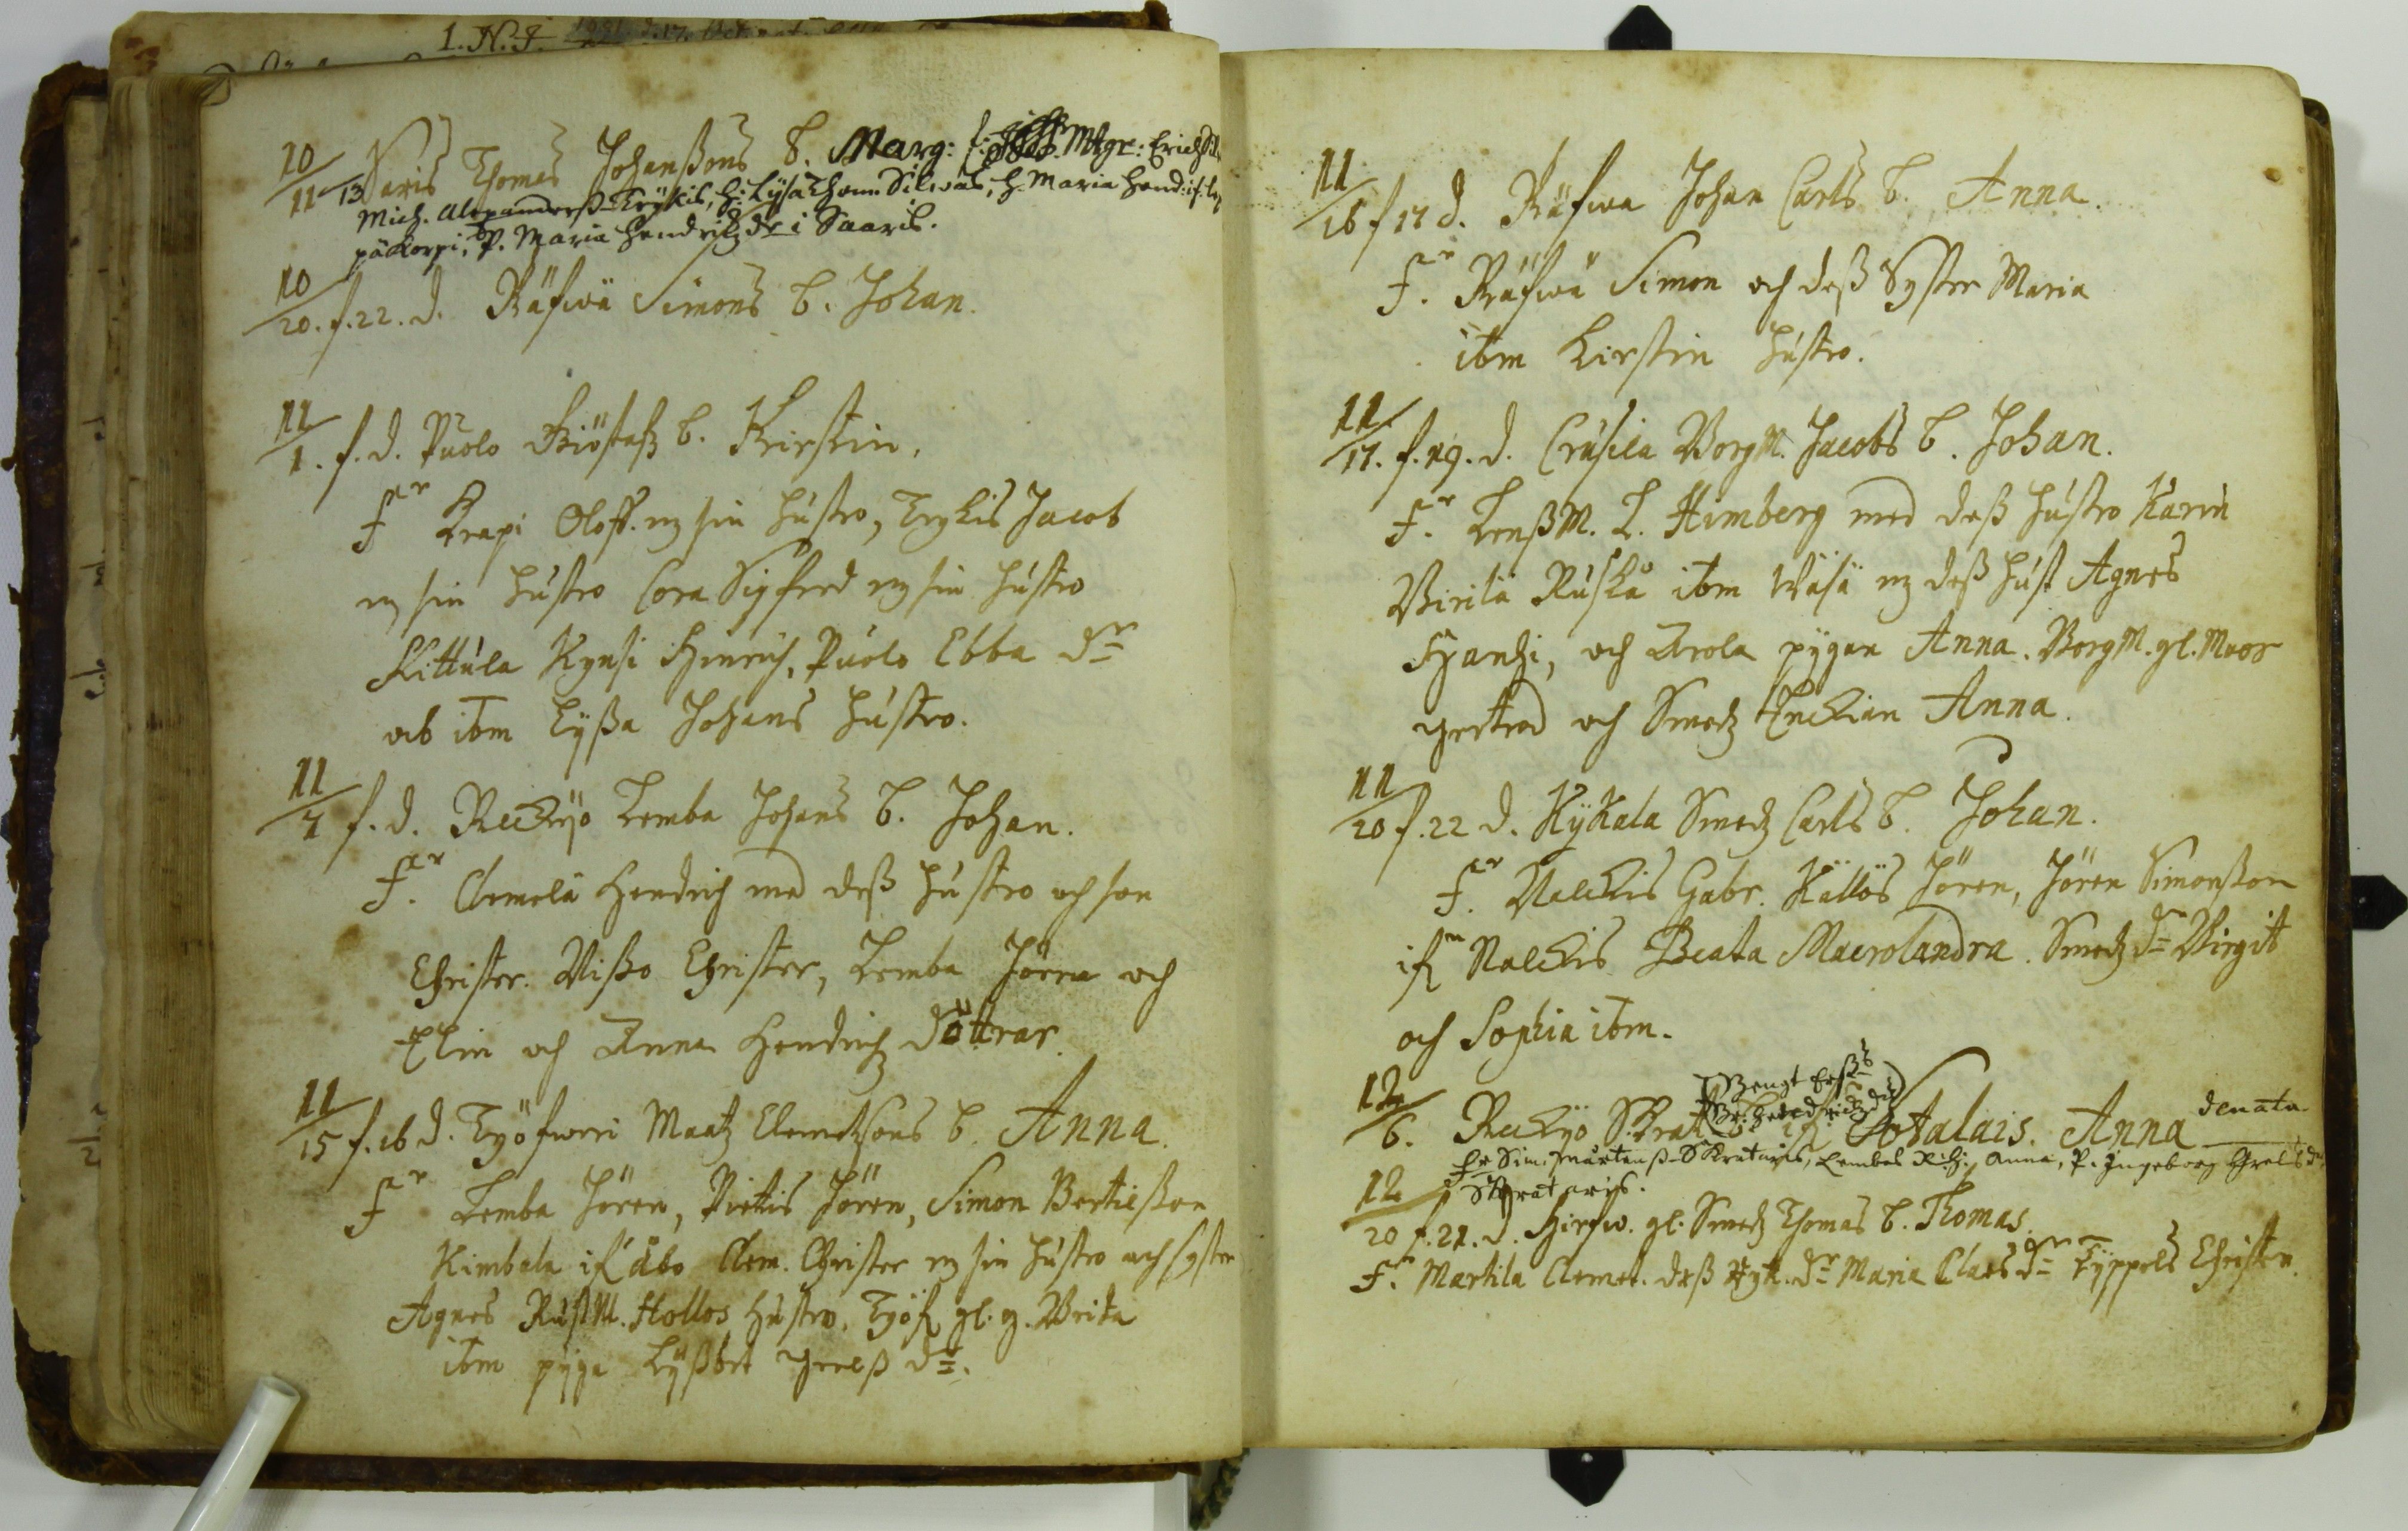 1. N. J.
10/11 13 Saris Thomas Johanßons b. Marg: f: Mtgr: Erich
Mich. Alexanderß Krÿkis, H: Lÿsa Thom: Silwas, H. Maria Hend: if:
päkorpi, P. Maria Hendrichz dr i Saaris.
10/20. f. 22. d. Räfwä Simons b. Johan.
11/1. f. d. Puolo Giöstafz b. Kirstin.
Fr Krapi Oloff. m sin hustro, Trykis Jacob
m sin hustro Cora Sigfred m sin hustro
Skittula Kynsi Hinrich, Puolo Ebba dr
ab ibm Lÿßa Johans hustro.
11/7 f. d. Reckÿo Lemba Johans b. Johan.
Fr. Clemelä Hendrich med deß hustro och son
Christer. Nißo Christer, Lemba Jören och
Elin och Anna Hendrichz döttrar.
11/15 f. 16 d. Työfweri Maatz Clemetzons b. Anna.
Fr Lemba Jören, Pietis Jören, Simon Bertilßon
Kimbala if Åbo Clem. Christer m sin hustro och syster
Agnes RustM. Hollos hustro. Työf gl. g. Brita
ibm pÿga Lÿßbet Grelß dr.
11/16 f 17 d. Räfwa Johan Carls b. Anna.
Fr. Räfwä Simon och deß Syster Maria
ibm Kirstin hustro.
11/17. f. 19. d. Crusila BorgM. Jacobs b. Johan.
Fr. LenßM. L. Himberg med deß hustro Karin
Birila Ruska ibm Wäsä m deß hust Agnes
Hanhi, och Arola pÿgan Anna. BorgM. gl. Moor
Gertrod och Smedz Enckian Anna.
11/20 f. 22 d. Kÿkala Smedz Carls b. Johan.
Fr. Nalckis Gabr. Källös Jören, Jören Simonßon
if Nalckis Beata Macrolandra. Smedz dr Birgit
och Sophia ibm.
(Bengt Erßs
12/6. Reckÿo Skrat if Sotalais. Anna denata
Fr Sim. Mårtenß Skrataris, Lembas Anna, P. Ingeborg Grels dr
Skrataris.
12/20 f. 21. d. Hirfw. gl. Smedz Thomas b. Thomas.
Fr. Martila Clemet. deß dr Maria Claes dr Lÿppels Christer.